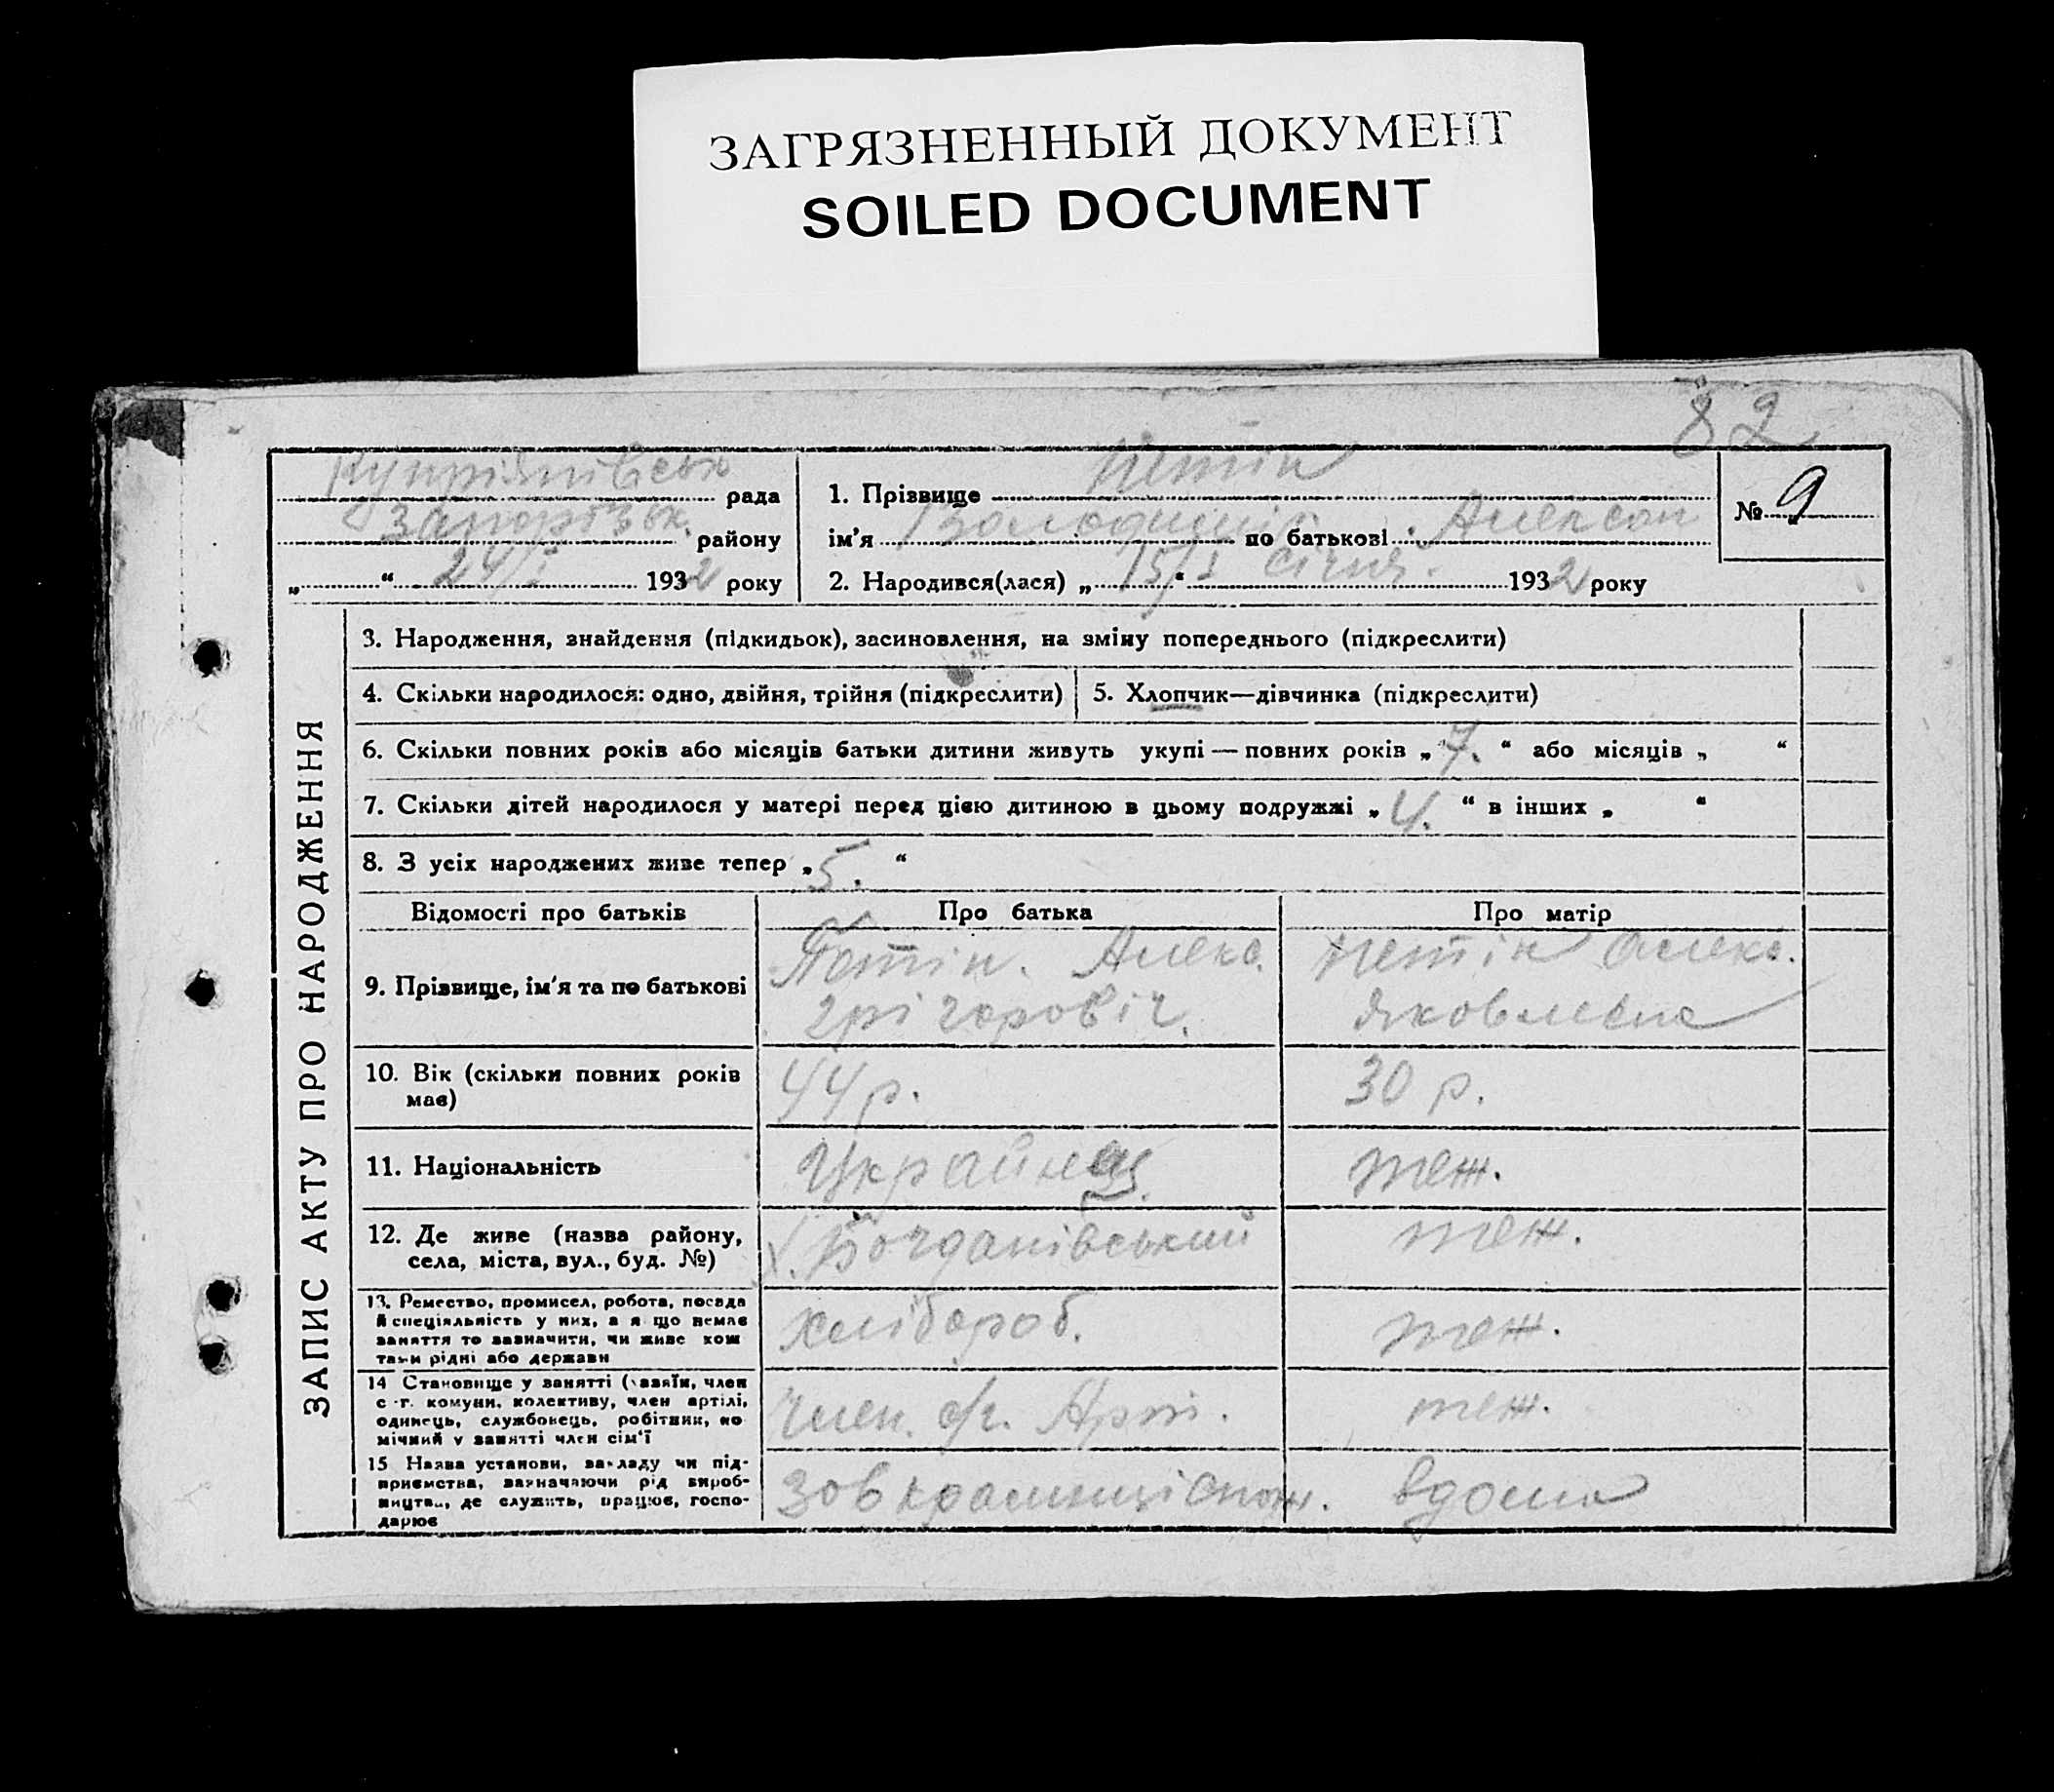 ЗАГРЯЗНЕННЫЙ ДОКУМЕНТ
SOILED DOCUMENT
82
рада
Запорізьк. району
„ “ 24/I 1932 року
1. Прізвище Петін
ім'я Володимір по батькові Алексан
2. Народився(лася) „ 15/I “ Січня. 1932 року
№ 9
ЗАПИС АКТУ ПРО НАРОДЖЕННЯ
3. Народження, знайдення (підкидьок), засиновлення, на зміну попереднього (підкреслити)
4. Скільки народилося: одно, двійня, трійня (підкреслити)
5. Хлопчик—дівчинка (підкреслити)
6. Скільки повних років або місяців батьки дитини живуть укупі — повних років „ 7. “ або місяців „ “
7. Скільки дітей народилося у матері перед цією дитиною в цьому подружжі „ 4. “ в інших „ “
8. З усіх народжених живе тепер „ 5. “
Відомості про батьків
Про батька
Про матір
9. Прізвище, ім'я та по батькові
Петін. Алекс.
грігоровіч.
Петін Олекс.
Яковлевна
10. Вік (скільки повних років
має)
44 р.
30 р.
11. Національність
Українец.
теж.
12. Де живе (назва району,
села, міста, вул., буд. №)
Х. Богданівський
теж.
13. Ремество, промисел, робота, посада
й спеціяльність у них, а я що немає
заняття то зазначити, чи живе кош
тами рідні або держави
Хлібороб.
теж.
14 Становище у занятті (хазяїн, член
с -г. комуни, колективу, член артілі,
одинець, службовець, робітник, по
мічний у занятті член сім'ї
Член. с/г. Арт.
теж.
15 Назва установи, закладу чи під-
приємства, зазначаючи рід вироб-
ництва, де служить, працює, госпо-
дарює
вдома